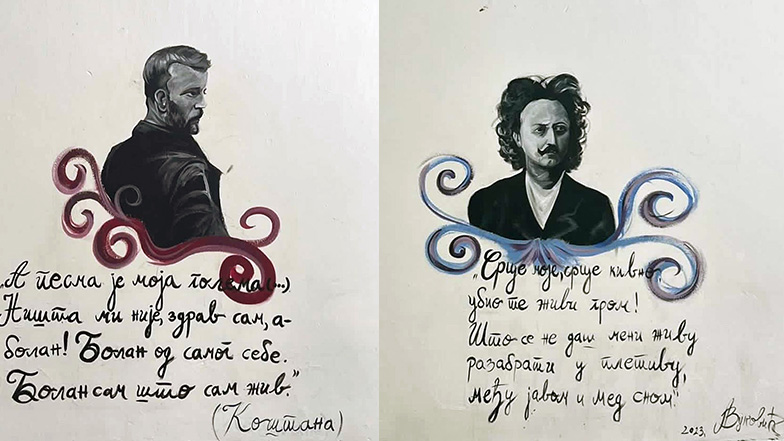 „А песма је моја голема(...)
Ништа ми није, здрав сам, а-
болан! Болан од самог себе.
Болан сам што сам жив."
(Коштана)
„Срце моје, срце кивно,
убио те живи гром!
Што се не даш мени живу
разабрати у плетиву,
међу јавом и мед сном"
2023. Вуковић